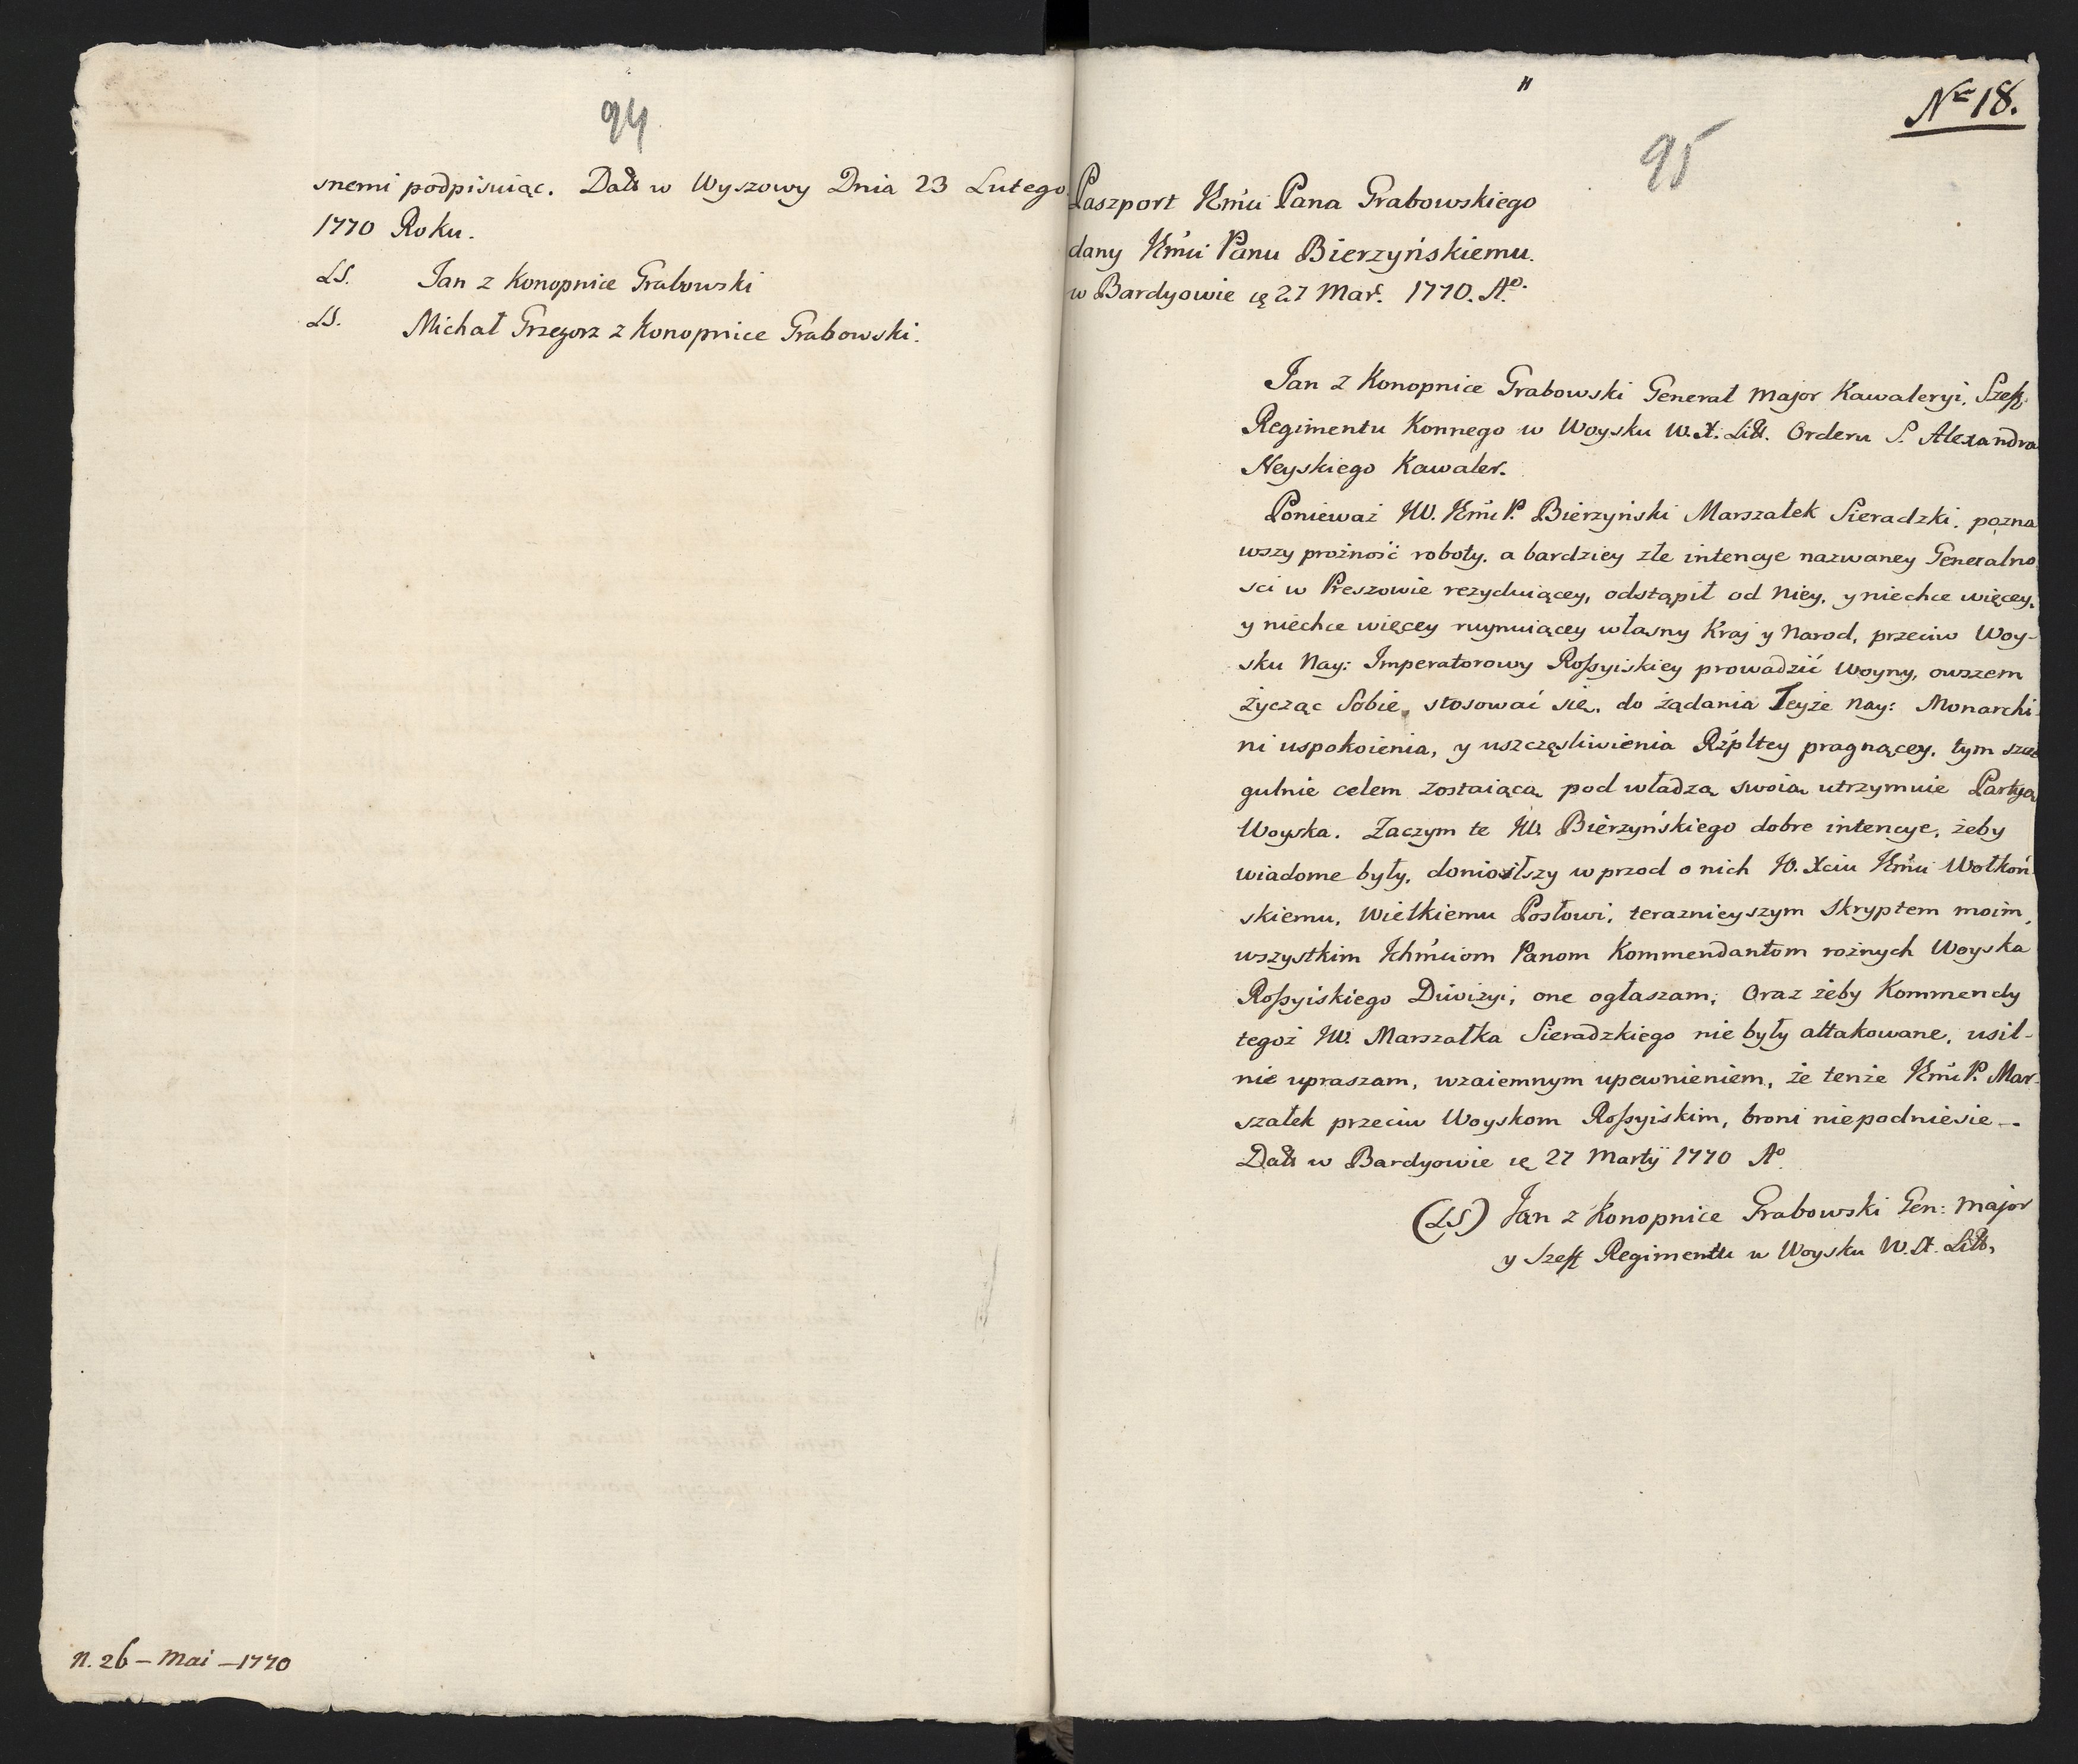 94
snemi podpisuiąc. Datt w Wyszowy Dnia 23 Lutego
1770 Roku.
LS. Jan z Konopnice Grabowski
LS. Michał Grzegorz z Konopnice Grabowski.
N. 26 – Mai – 1770
No 18.
95
Paszport JEmći Pana Grabowskiego
dany JEmći Panu Bierzyńskiemu.
w Bardyowie 27 Mar. 1770. Ao.
Jan z Konopnice Grabowski Generał Major Kawaleryi, Szeff
Regimentu Konnego w Woysku W. X. Litt. Orderu S. Alexandra
Neyskiego Kawaler.
Ponieważ JW. JEmć P. Bierzyński Marszałek Sieradzki, pozna
wszy prożność roboty, a bardziey złe intencye nazwaney Generalno
sci w Preszowie rezyduiącey, odstąpił od niey, y niechce więcey,
y niechce więcey ruynuiącey własny Kraj y Narod, przeciw Woy-
sku Nay: Imperatorowy Rossyiskiey prowadzić Woyny, owszem
życząc Sobie, stosować się, do żądania Teyże Nay: Monarchi-
ni uspokoienia, y uszczęsliwienia Rzpltey pragnącey, tym szcze
gulnie celem zostaiącą pod władzą swoią utrzymuie Partyą
Woyska. Zaczym te JW. Bierzyńskiego dobre intencye, żeby
wiadome były, doniosłszy w przod o nich JO. Xciu JEmći Wołkoń
skiemu, Wielkiemu Posłowi, teraznieyszym Skryptem moim,
wszystkim Ichmciom Panom Kommendantom rożnych Woyska
Rossyiskiego Diwizyi, one ogłaszam; Oraz żeby Kommendy
tegoż JW. Marszałka Sieradzkiego nie były attakowane, usil-
nie upraszam, wzaiemnym upewnieniem, że tenże JEmć P. Mar-
szałek przeciw Woyskom Rossyiskim, broni niepodniesie –.
Datt w Bardyowie 27 Martÿ 1770 Ao
(LS) Jan z Konopnice Grabowski Gen: Major
y Szeff Regimentu w Woysku W. X. Litt.